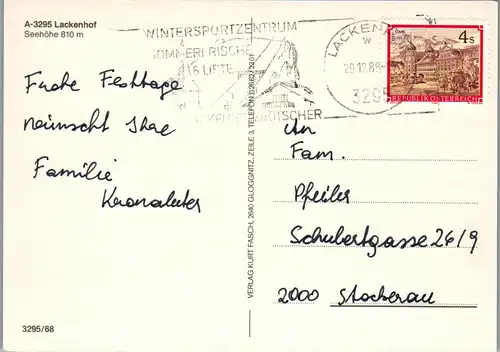 A-3295 Lackenhof
Seehöhe 810 m
WINTERSPORTZENTRUM
SOMMERFRISCHE
6 LIFTE
LACKENHOF
29.12.88
3295
4 S
REPUBLIK ÖSTERREICH
Frohe Festtage
wünscht Ihre
Familie
VERLAG KURT FASCH, 2640 GLOGGNITZ, ZEILE 3, TELEFON 02662/2201
An
Fam.
Pfeiler
Schubertgasse 26/9
2000 Stockerau
3295/68